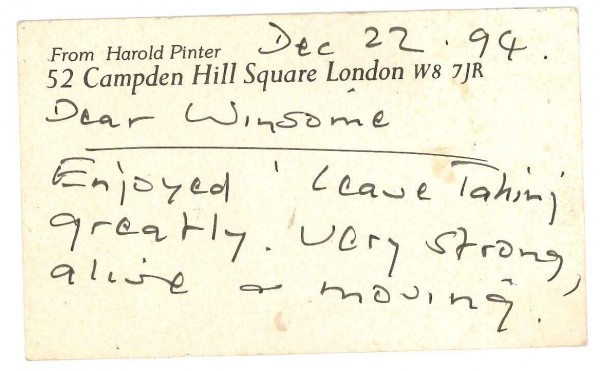 From Harold Pinter Dec 22. 94.
52 Campden Hill Square London W8 7JR
Dear Winsome
Enjoyed 'Leave Taking'
greatly. Very strong,
alive & moving.